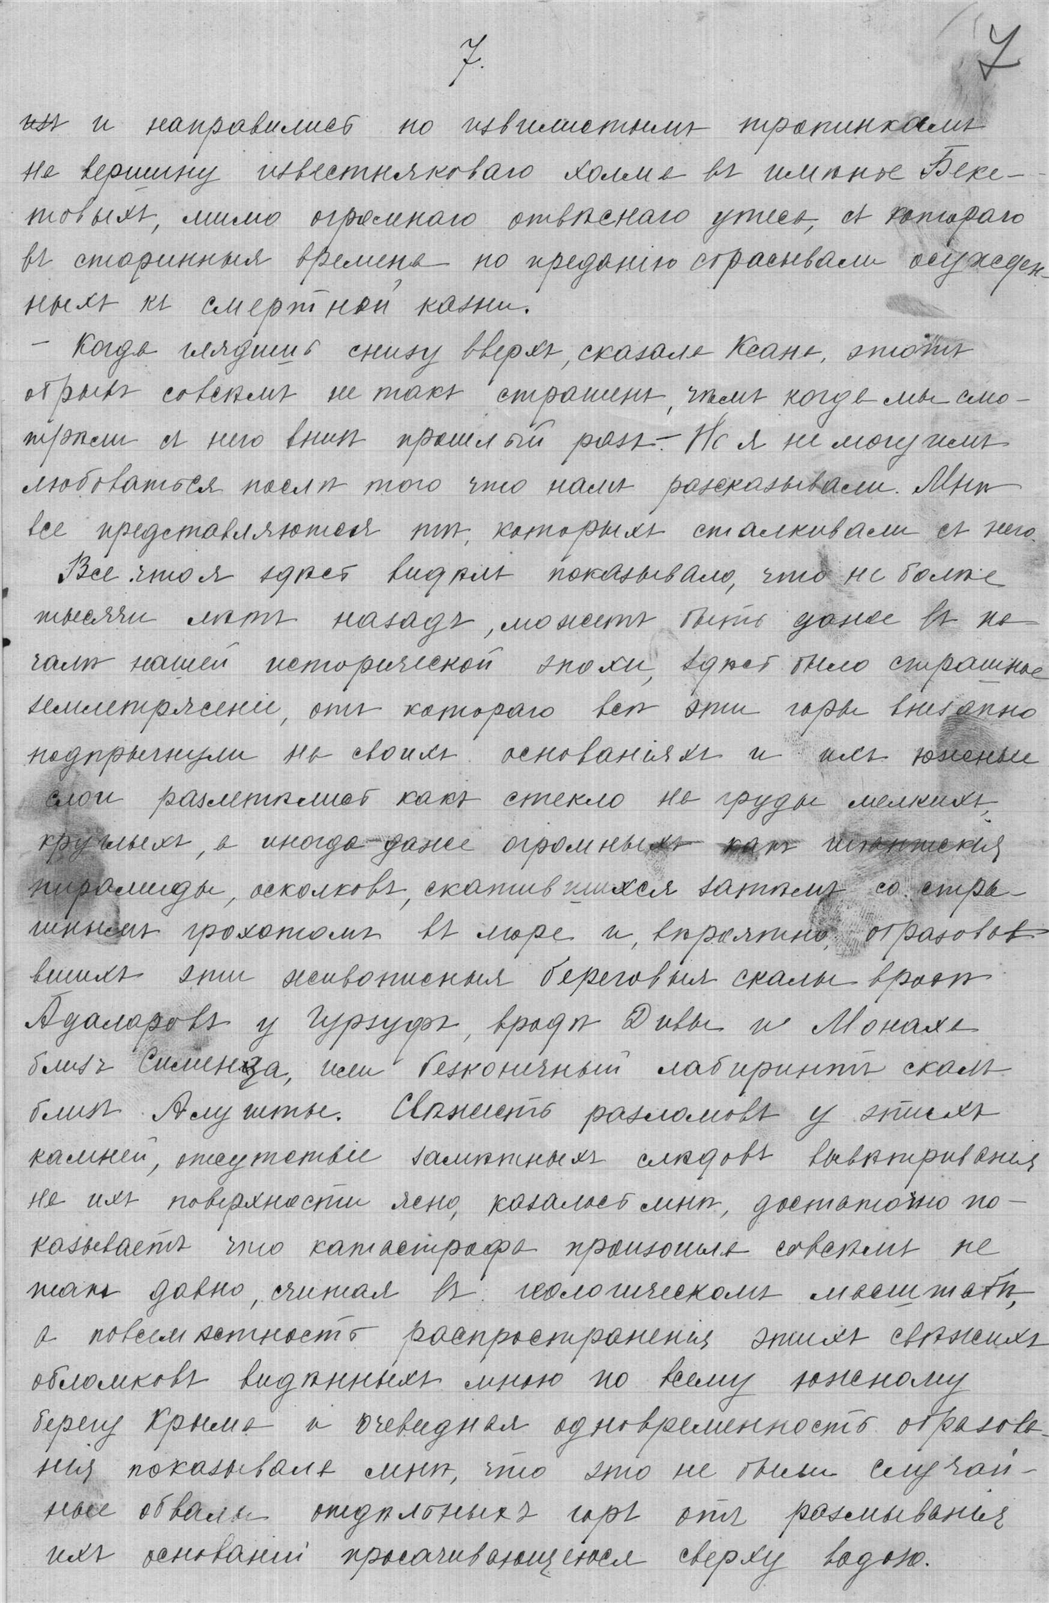 7. 7
изъ и направились по извилистымъ тропинкамъ
на вершину известняковаго холма въ имѣніе Беке-
товыхъ, мимо огромнаго отвѣснаго утеса, съ котораго
въ старинныя времена по преданію сбрасывали осужден-
ныхъ къ смертной казни.
– Когда глядишь снизу вверхъ, сказала Ксана, этотъ
обрывъ совсѣмъ не такъ страшенъ, чѣмъ когда мы смо-
трѣли съ него внизъ прошлый разъ. – Но я не могу имъ
любоваться послѣ того что намъ разсказывали. Мнѣ
все представляются тѣ, которыхъ сталкивали съ него.
Все что я здѣсь видѣлъ показывало, что не болѣе
тысячи лѣтъ назадъ, можетъ быть даже въ на-
чалѣ нашей исторической эпохи, здѣсь было страшное
землетрясеніе, отъ котораго всѣ эти горы внезапно
подпрыгнули на своихъ основаніяхъ и ихъ южные
слои разлетѣлись какъ стекло на груды мелкихъ,
круглыхъ, а иногда даже огромныхъ какъ египетскія
пирамиды, осколковъ, скатившихся затѣмъ со стра-
шнымъ грохотомъ въ море и, вѣроятно, образовав-
шихъ эти живописныя береговыя скалы вродѣ
Адаларовъ у Гурзуфа, вродѣ Дивы и Монаха
близъ Симеиза, или безконечный лабиринтъ скалъ
близъ Алушты. Свѣжесть разломовъ у этихъ
камней, отсутствіе замѣтныхъ слѣдовъ вывѣтриванія
на ихъ поверхности ясно, казалось мнѣ, достаточно по-
казываетъ что катастрофа произошла совсѣмъ не
такъ давно, считая въ геологическомъ масштабѣ,
а повсемѣстность распространенія этихъ свѣжихъ
обломковъ видѣнныхъ мною по всему южному
берегу Крыма и очевидная одновременность образова-
нія показывала мнѣ, что это не были случай-
ные обвалы отдѣльныхъ горъ отъ размыванія
ихъ основаній просачивающеюся сверху водою.